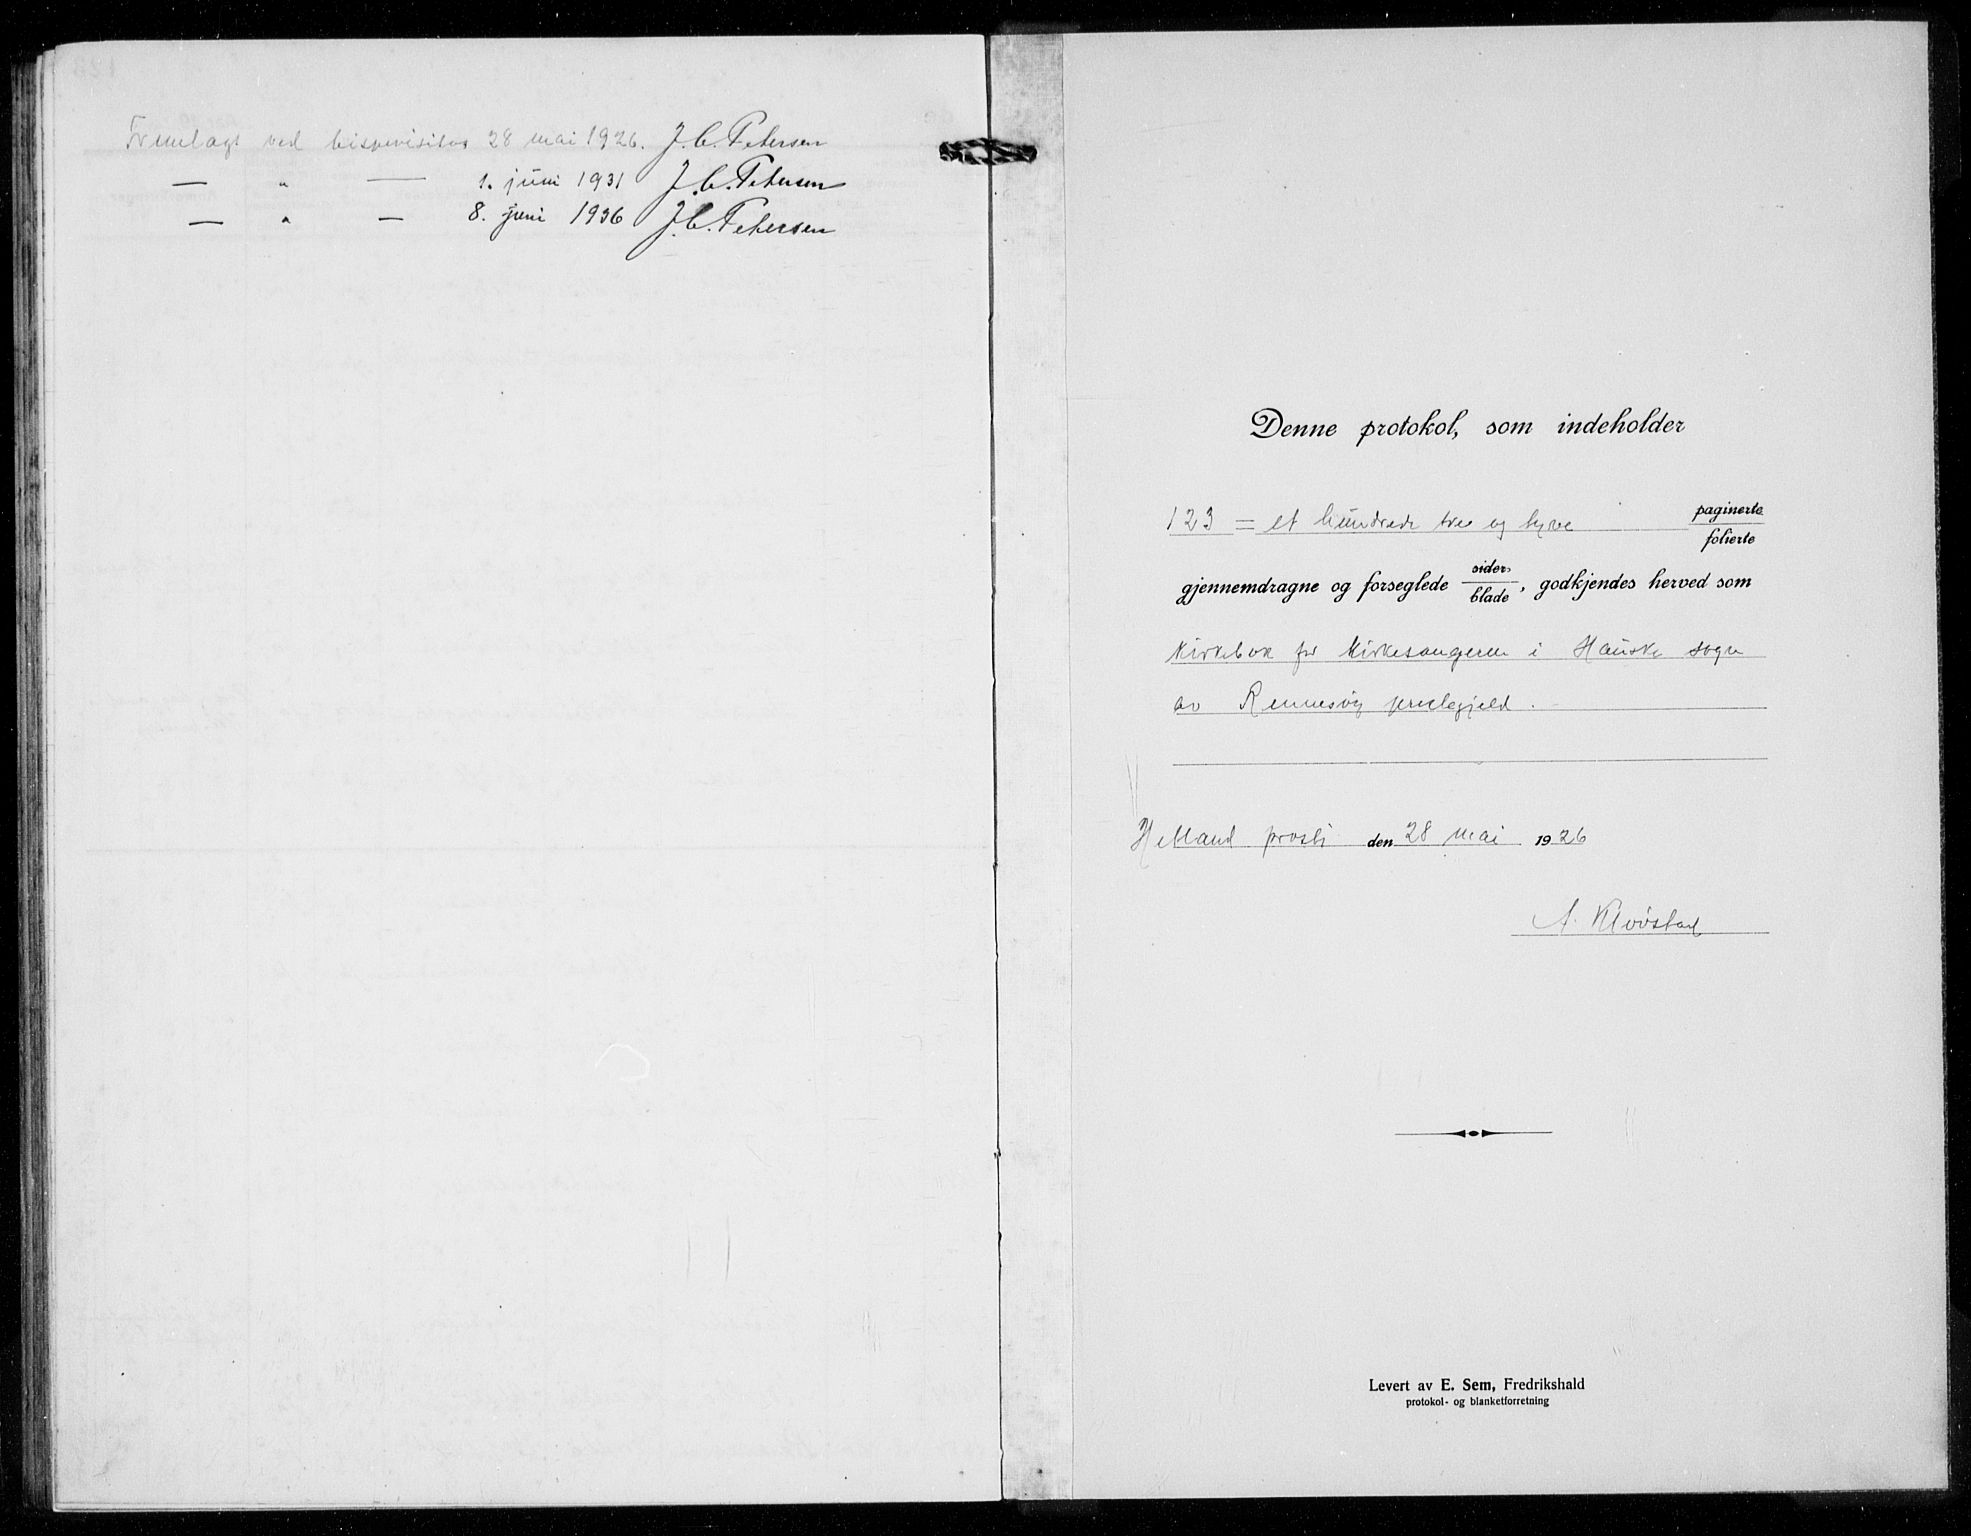 Fremlagt ved bispevisitas 28 mai 1926. J. C. Petersen
— " — 1. juni 1931 J. C. Petersen
— " — 8. juni 1936 J. C. Petersen
Denne protokol, som indeholder
123 = et hundrede tre og tyve paginerte
folierte
gjennemdragne og forseglede sider
blade, godkjendes herved som
kirkebok for kirkesangeren i Hauske sogn
av Rennesøy prestegjeld.
Hetland prosti den 28 mai 1926
A. Kløvstad
Levert av E. Sem, Fredrikshald
protokol- og blanketforretning